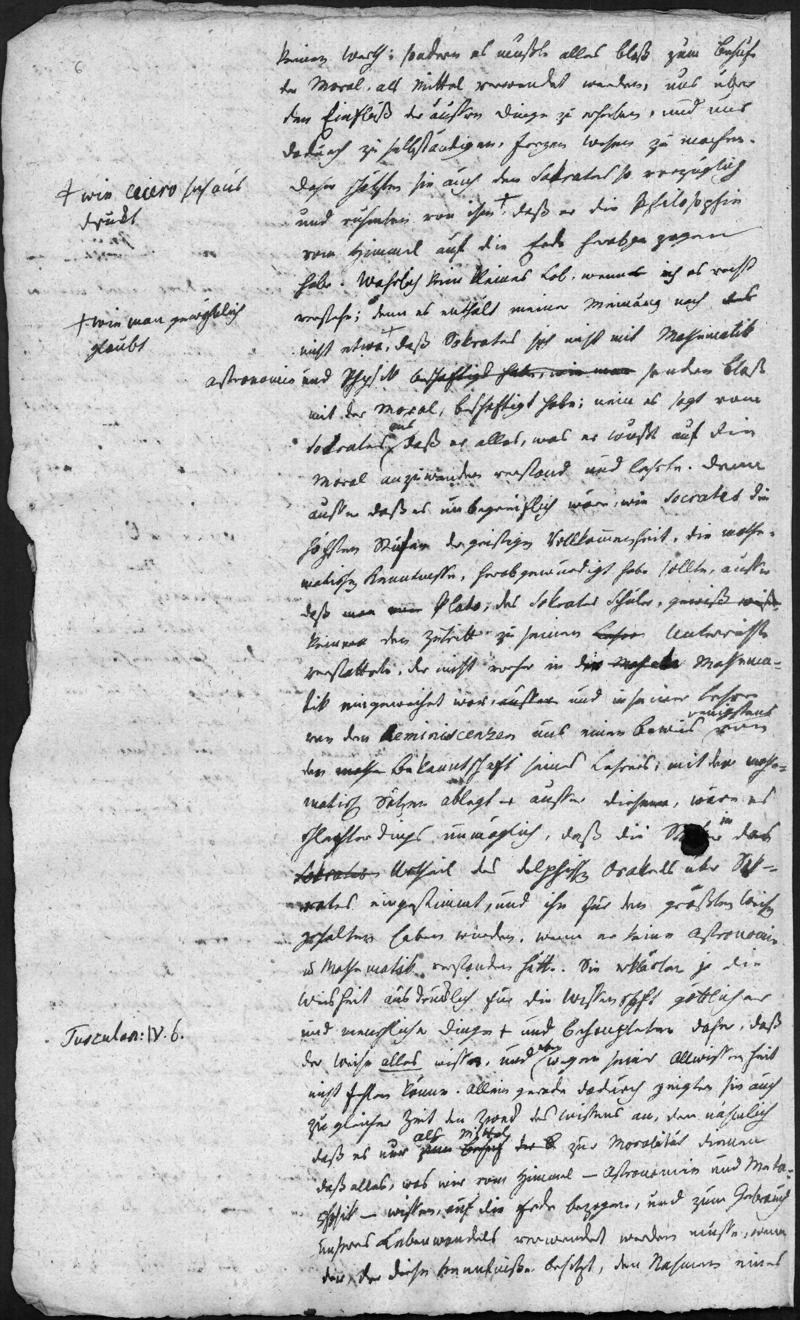 keinen Werth; sondern es mußte alles bloß zum Behufe
der Moral, als Mittel verwendet werden, uns über
den Einfluß der äussern Dinge zu erheben, und uns
dadurch zu selbständigen, freyen Wesen zu machen.
Daher schätzten sie auch den Sokrates so vorzüglich
+ wie Cicero sich aus
drückt
und rühmten von ihm +, daß er die Philosophie
vom Himmel auf die Erde herabgezogen
habe. Wahrlich kein kleines Lob, wenn ich es recht
verstehe; denn es enthält meiner Meinung nach das
+ wie man gewöhnlich
glaubt
nicht etwa +, daß Sokrates sich nicht mit Mathematik
Astronomie und Physik beschäftigt habe, wie man sondern bloß
mit der Moral, beschäftigt habe; nein es sagt vom
Sokrates aus, daß er alles, was er wußte auf die
Moral anzuwenden verstand und lehrte. Denn
ausser daß es unbegreiflich wäre, wie Socrates die
höchsten Stufen der geistigen Vollkommenheit, die mathe-
matischen Kenntnisse, herabgewürdigt habe sollte, ausser
daß Plato, des Sokrates Schüler, gewiß
keinen den Zutritt zu seinem Unterrichte
verstattete, der nicht vorher in die Mathema-
tik eingeweihet war, ausser und in seiner Lehre
von den Reminiscenzen uns einen Beweis wenigstens von
der Bekanntschaft seines Lehrers, mit den mathe-
matisch Sätzen ablegt – ausser diesem, wäre es
schlechterdings unmöglich, daß die in das
Sokrates Urtheil des delphisch Orakels über Sok-
rates eingestimmt, und ihn für den größten Weisen
gehalten haben würden, wenn er keine Astronomie
u Mathematik verstanden hätte. Sie erklärten ja die
Weisheit ausdrücklich für die Wissenschaft göttlicher
Tusculan: IV. 6.
und menschlicher Dinge + und behaupteten daher, daß
der Weise alles wisse, und eben wegen seiner Allwissenheit
nicht fehlen könne. Allein gerade dadurch zeigten sie auch
zu gleicher Zeit den Zweck des Wissens an, den nähmlich
daß es nur als Mittel zum Behuf der zur Moralität dienen
daß alles, was wir vom Himmel – Astronomie und Meta-
physik – wissen, auf die Erde bezogen, und zum Gebrauch
unseres Lebenwandels verwendet werden müsse, wenn
der, der diese Kenntniße besitzt, den Nahmen eines